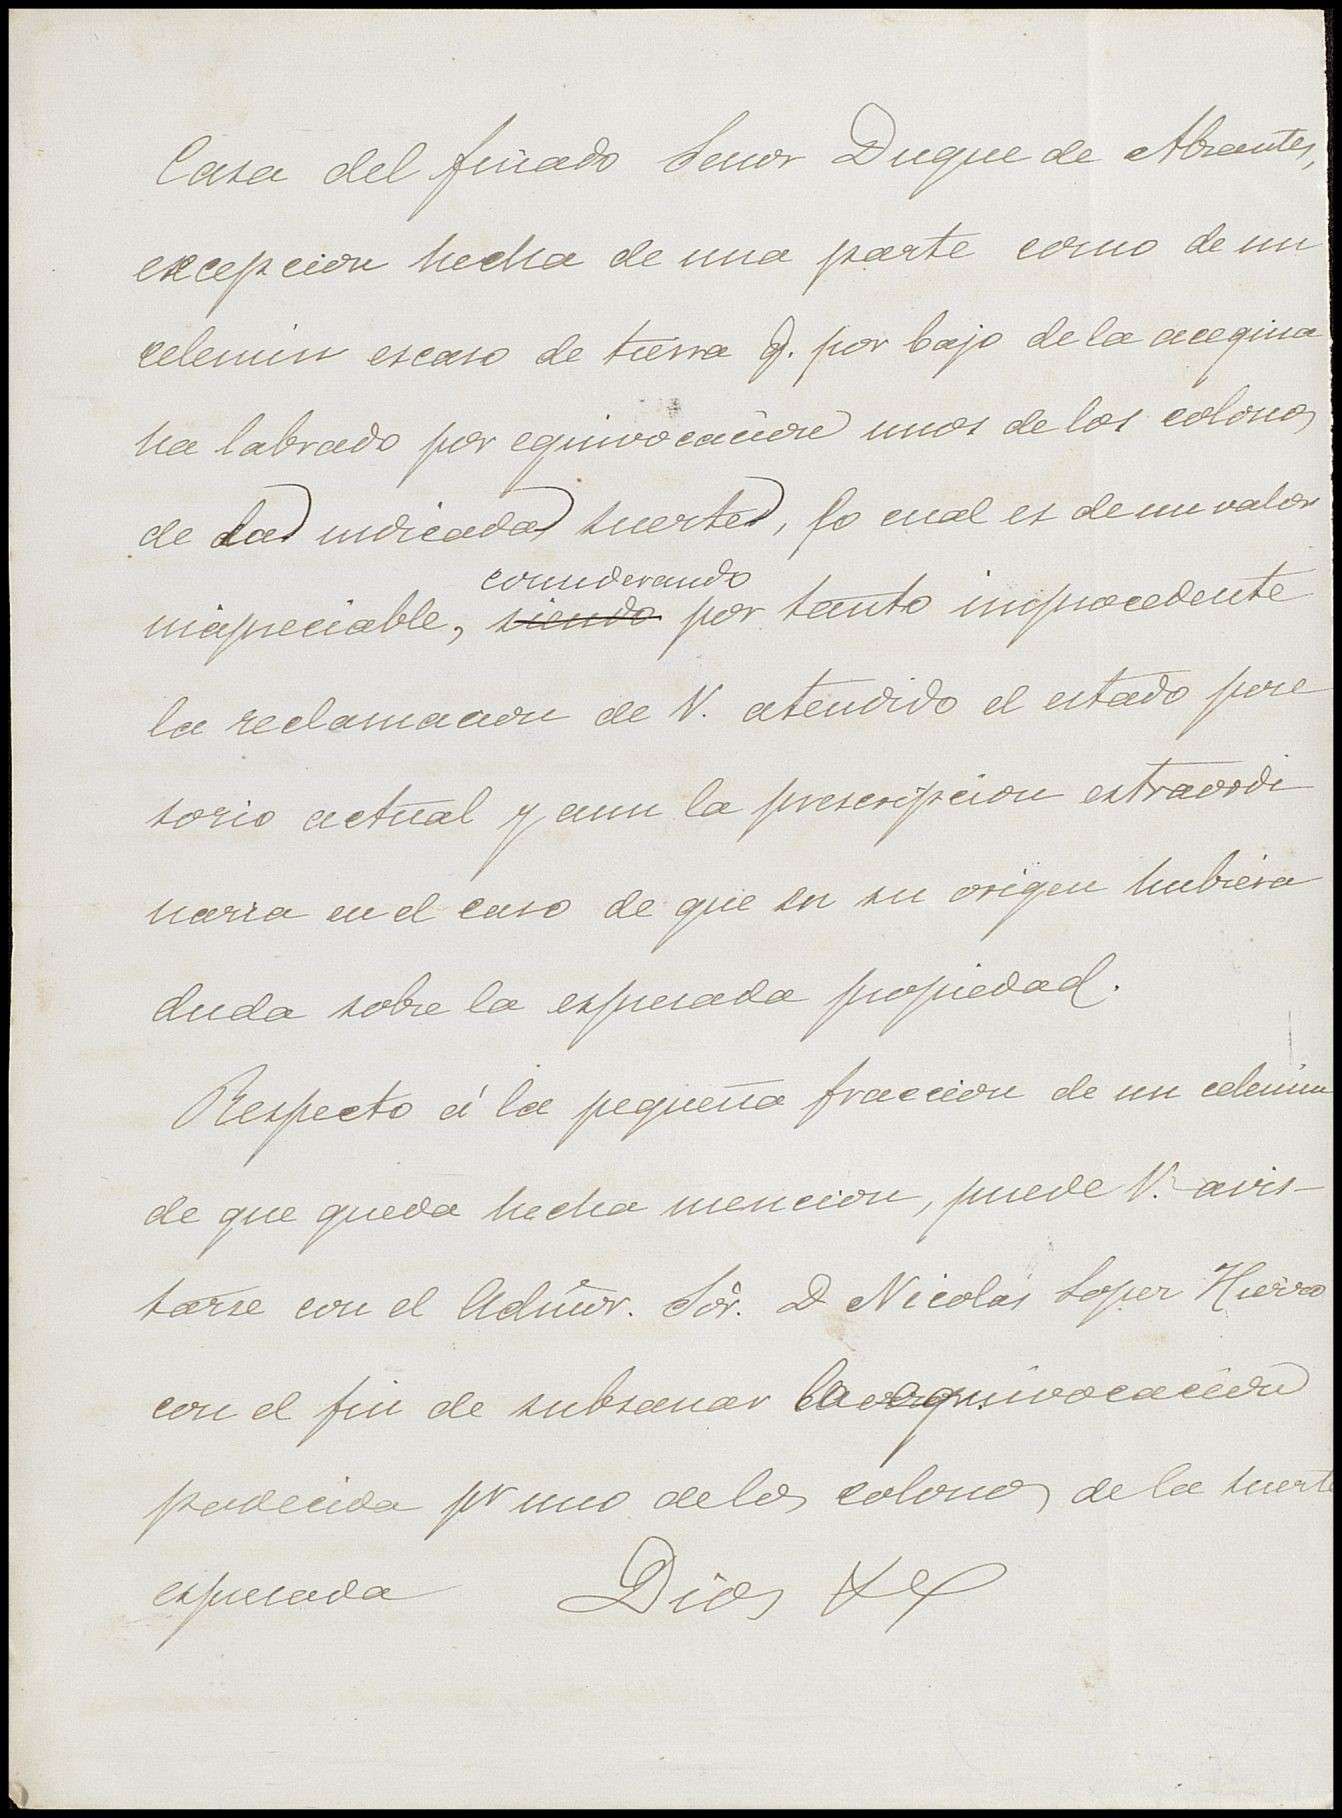 Casa del finado Señor Duque de Abrantes,
excepcion hecha de una parte como de un
celemin escaso de tierra q. por bajo de la acequia
ha labrado por equivocacion unos de los colonos
de las indicadas suertes, lo cual es de un valor
considerando
inapreciable, siendo por tanto improcedente
la reclamacion de V. atendido el estado pose
sorio actual y aun la prescripcion extraordi
naria en el caso de que en su origen hubiera
duda sobre la espresada propiedad.
Respecto á la pequeña fraccion de un celemin
de que queda hecha mencion, puede V. avis-
tarse con el Admor. Sor. D Nicolás Loper Hierro
con el fin de subsanar la equivocacion
padecida pr uno de los colonos de la suerte
espresada Dios &